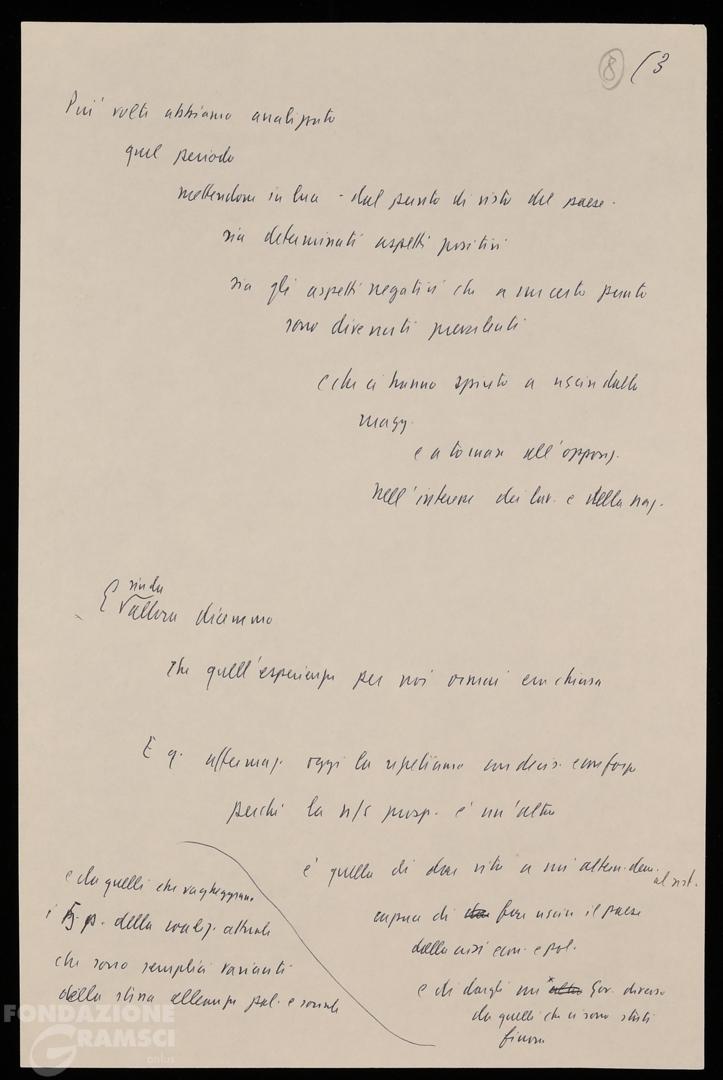 8 (3
Più volte abbiamo analizzato
quel periodo
mettendone in luce - dal punto di vista del paese -
sia determinati aspetti positivi
sia gli aspetti negativi che a un certo punto
sono divenuti prevalenti
e che ci hanno spinto a uscire dalla
magg.
e a tornare all'oppos.
nell'interesse dei lav. e della naz.
sin da
E allora dicemmo
che quell'esperienza per noi ormai era chiusa
E q. affermaz. oggi la ripetiamo con decis. e con forza
perché la n/s prosp. è un'altra
è quella di dar vita a un'altern. dem.
al sist.
capace di fare uscire il paese
dalla crisi econ. e pol.
e di dargli un Gov. diverso
da quelli che ci sono stati
finora
e da quelli che vagheggiano
i 5 p. della coaliz. attuale
che sono semplici varianti
della stessa alleanza pol. e sociale
FONDAZIONE
GRAMSCI
onlus